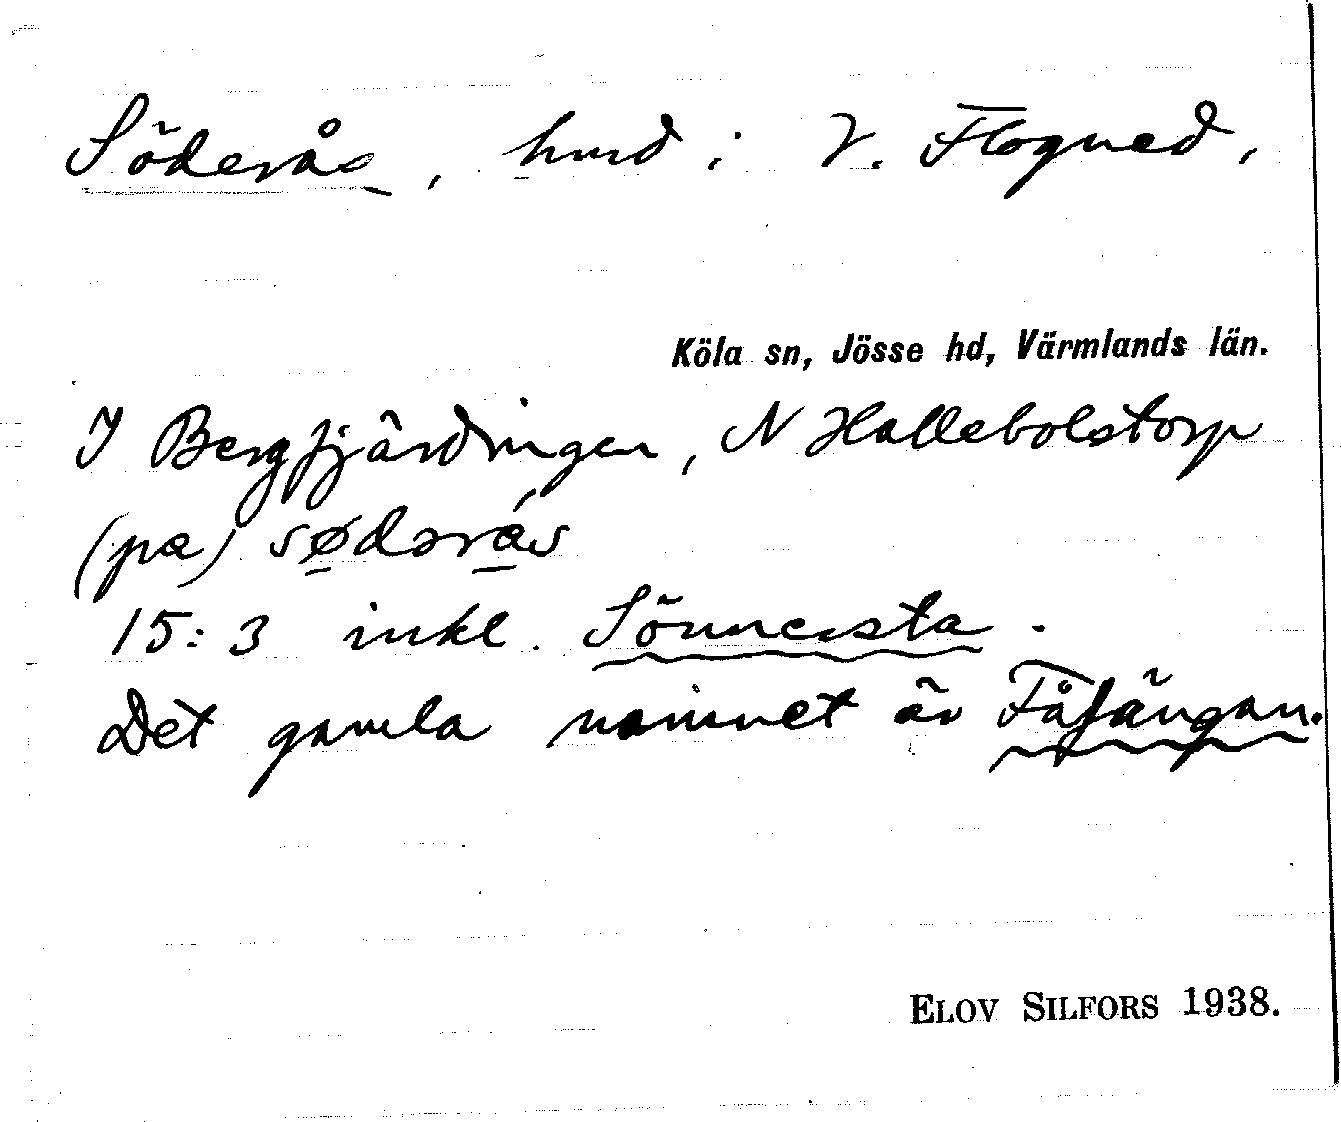 Söderås, hmd i V. Flogned,
Köla sn, Jösse hd, Värmlands län.
I Bergfjärdingen, N Hallebolstorp
(pa) sødərás
15:3 inkl. Sönnersta.
Det gamla namnet är Fåfängan.
ELOV SILFORS 1938.